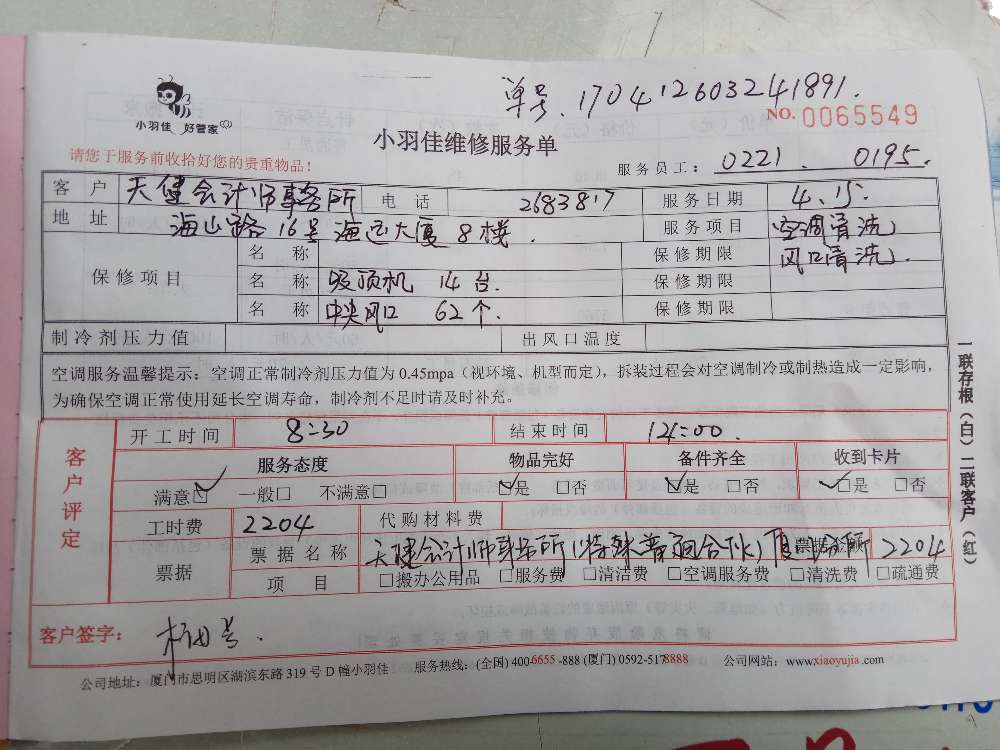 单号 170412603241891.
NO. 0065549
小羽佳 好管家
小羽佳维修服务单
请您于服务前收拾好您的贵重物品！
服务员工： 0221. 0195.
客户 天健会计师事务所 电话 2683817 服务日期 4.15.
地址 海山路16号海运大厦8楼. 服务项目 空调清洗
保修项目 名称 保修期限 风口清洗.
名称 吸顶机 14台. 保修期限
名称 中央风口 62个. 保修期限
制冷剂压力值 出风口温度
空调服务温馨提示：空调正常制冷剂压力值为0.45mpa（视环境、机型而定），拆装过程会对空调制冷或制热造成一定影响，
为确保空调正常使用延长空调寿命，制冷剂不足时请及时补充。
客户评定
开工时间 8:30 结束时间 12:00.
服务态度 物品完好 备件齐全 收到卡片
满意☑ 一般□ 不满意□ ☑是 □否 ☑是 □否 ☑是 □否
工时费 2204 代购材料费
票据 票据名称 天健会计师事务所(特殊普通合伙)厦门分所 2204
项目 □搬办公用品 □服务费 □清洁费 □空调服务费 □清洗费 □疏通费
客户签字：
公司地址：厦门市思明区湖滨东路319号D幢小羽佳 服务热线：(全国) 400-6655-888 (厦门) 0592-5178888 公司网站：www.xiaoyujia.com
一联存根（白）二联客户（红）